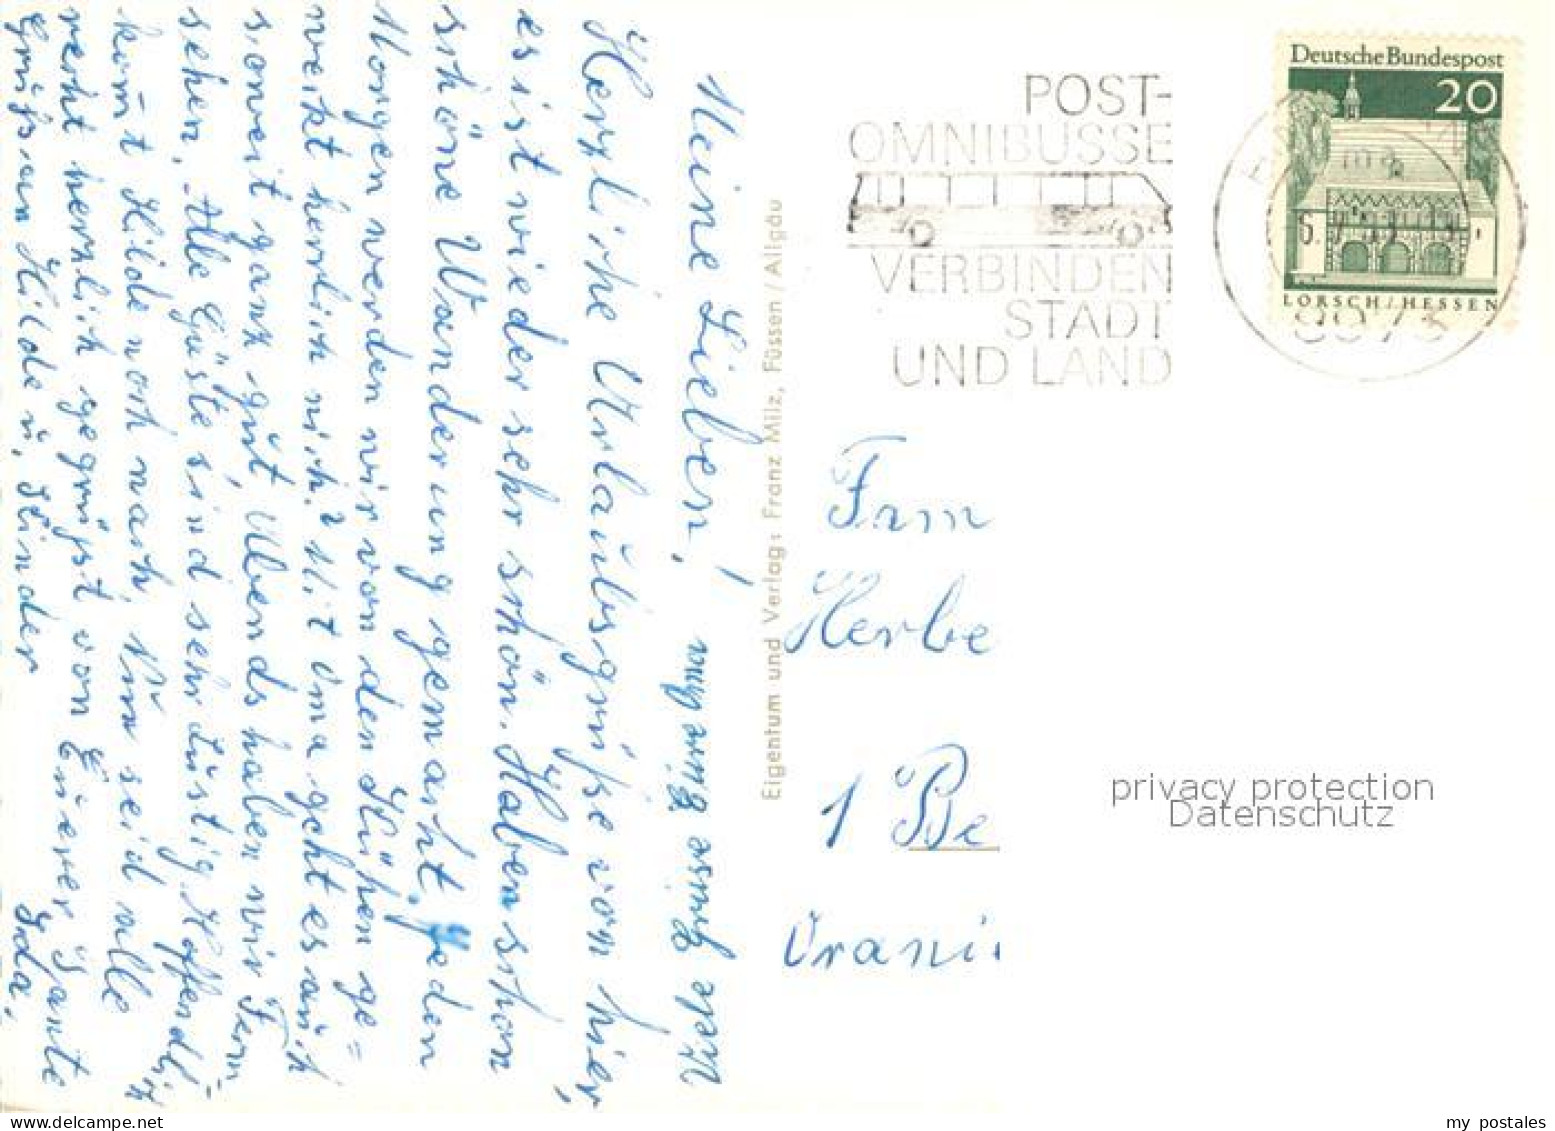 Meine Lieben!
Herzliche Urlaubsgrüße von hier,
es ist wieder sehr schön. Haben schon
schöne Wanderung gemacht. Jeden
Morgen werden wir von den Kühen ge=
weckt herrlich nich? Mit Oma geht es auch
soweit ganz gut, Abends haben wir Fern-
sehen. Alle Gäste sind sehr lustig. Hoffendlich
kom̄t Hilde noch nach, Nun seid alle
recht herzlich gegrüßt von Eurer Tante
Grüße an Hilde u. Kinder Ida.
Viele Grüsse Eure Oma
Eigentum und Verlag: Franz Milz, Füssen/Allgäu
POST-
OMNIBUSSE
VERBINDEN
STADT
UND LAND
Deutsche Bundespost
20
LORSCH/HESSEN
Fam
Herbe
1 Be
Orani
privacy protection
Datenschutz
my postales